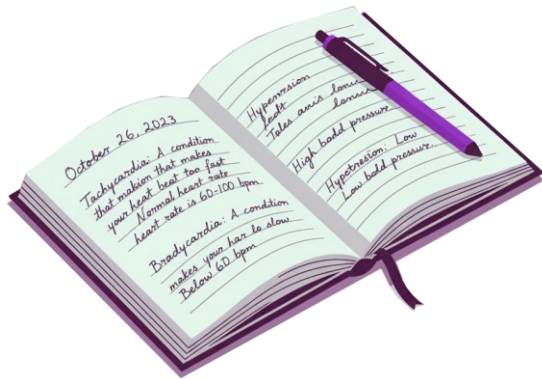 October 26, 2023
Tachycardia: A condition
that makion that makes
your heart beat too fast
Normal heart rate
heart rate is 60-100 bpm
Bradycardia: A condition
makes your har to slow
Below 60 bpm
Hypenrsion
Tales
High badd pressure
Hypetresion: Low
Low bold pressure.